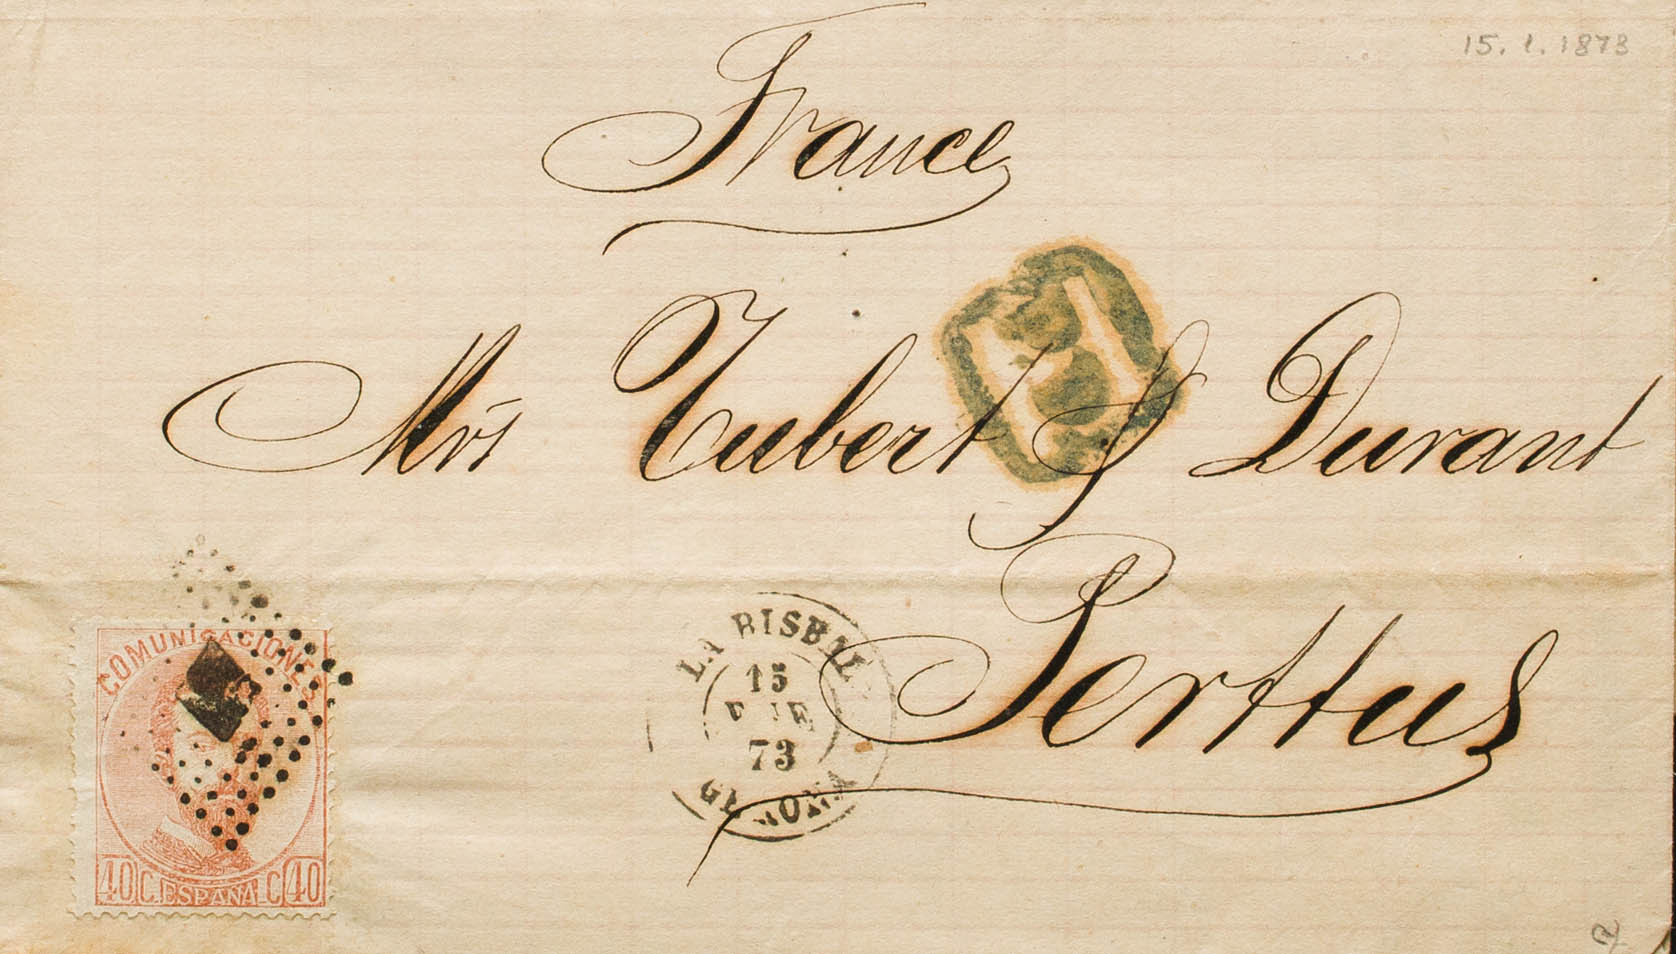 15. 1. 1873
France
Mrs Tubert & Durant
Perttus
COMUNICACIONES
40 C. ESPAÑA C 40
LA BISBAL
15
ENE
73
GERONA